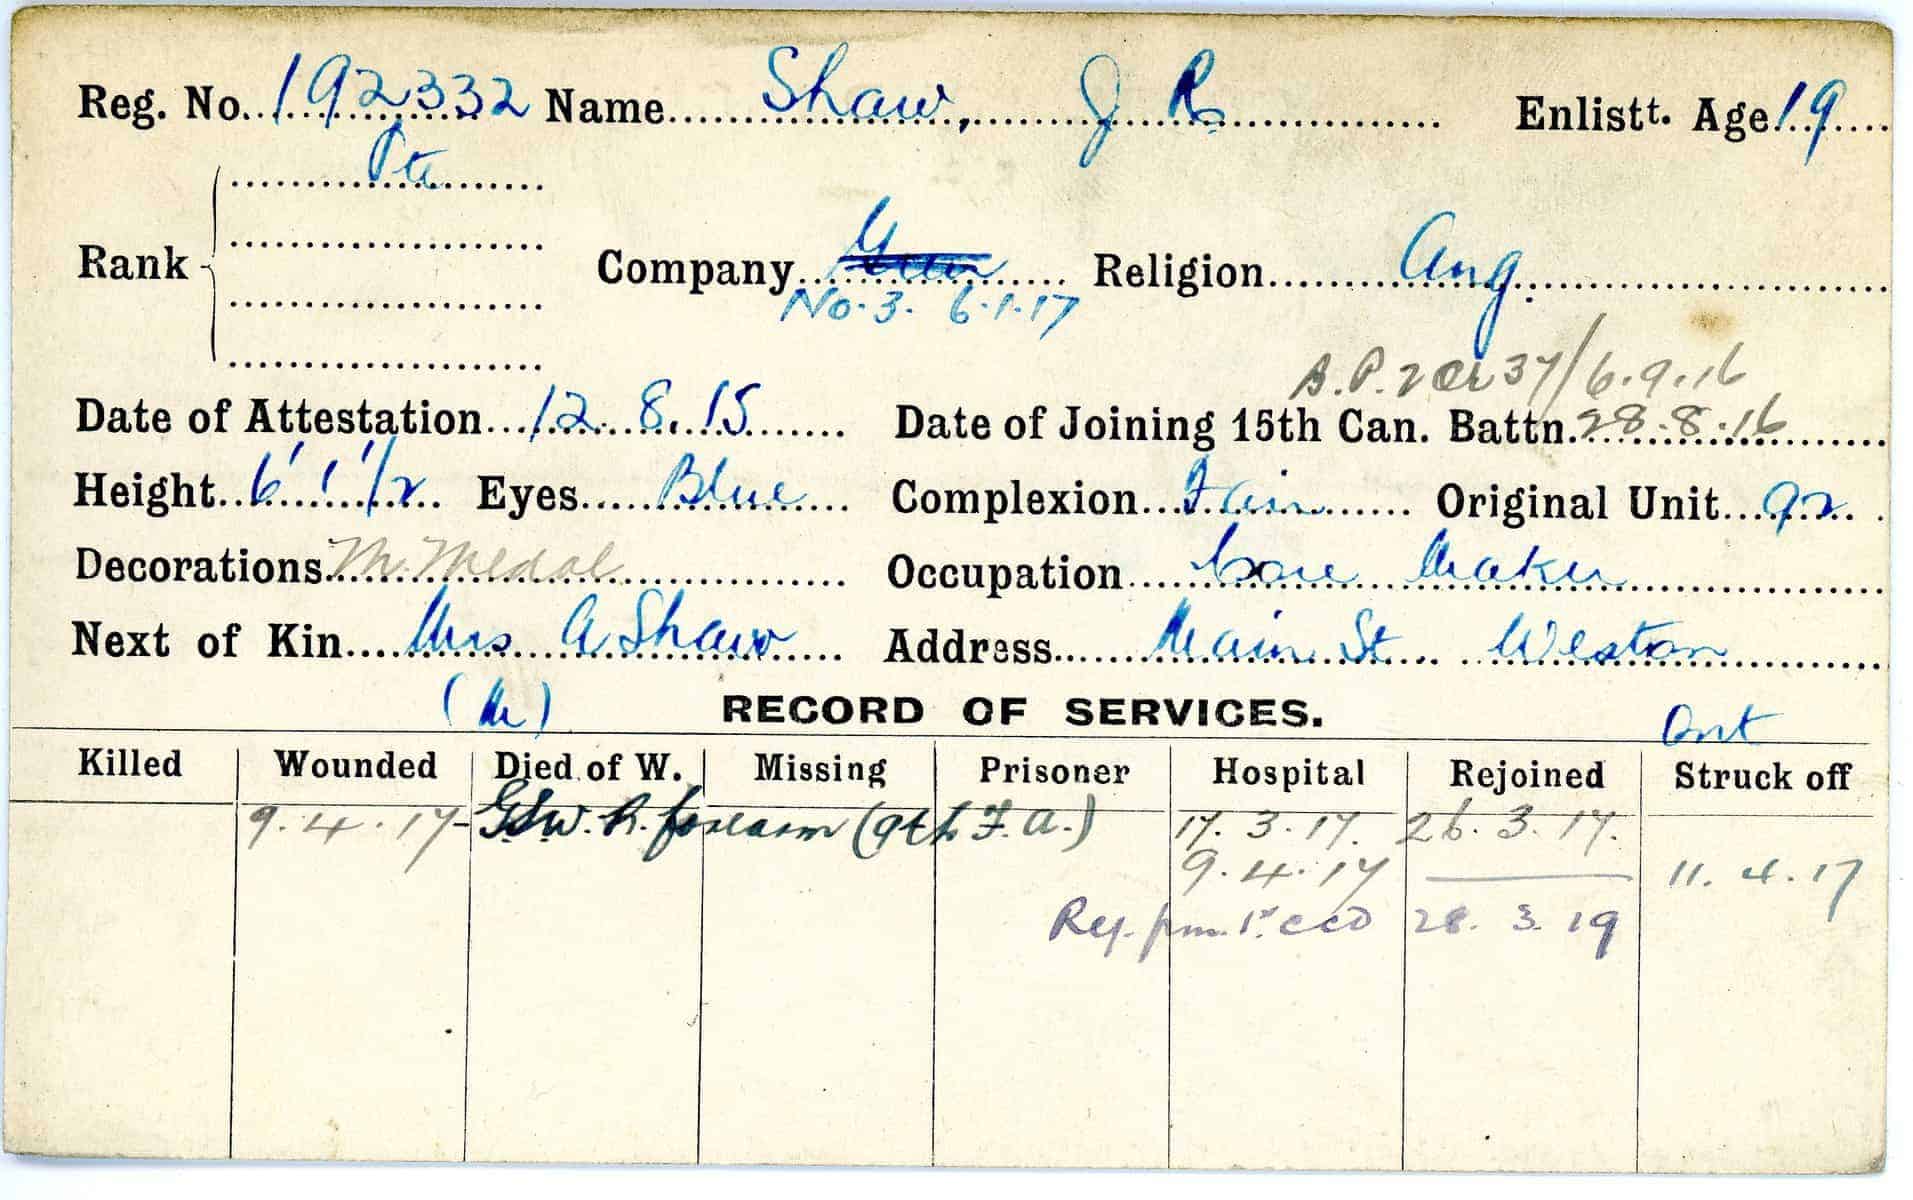 Reg. No. 192332 Name Shaw, J R Enlistt. Age 19
Pte
Rank Company Religion Ang.
No. 3. 6.1.17
B.P. 2 Or 37/6.9.16
Date of Attestation 12.8.15 Date of Joining 15th Can. Battn. 28.8.16
Height 6' 1 1/2 Eyes Blue Complexion Fair Original Unit 92
Decorations M. Medal Occupation Core Maker
Next of Kin Mrs A Shaw Address Main St Weston
(M) RECORD OF SERVICES. Ont
Killed Wounded Died of W. Missing Prisoner Hospital Rejoined Struck off
9.4.17- GSW. R. forearm (9th F.A.) 17.3.17. 26.3.17.
9.4.17 11.4.17
Rej. fm. 1st CCD 28.3.19